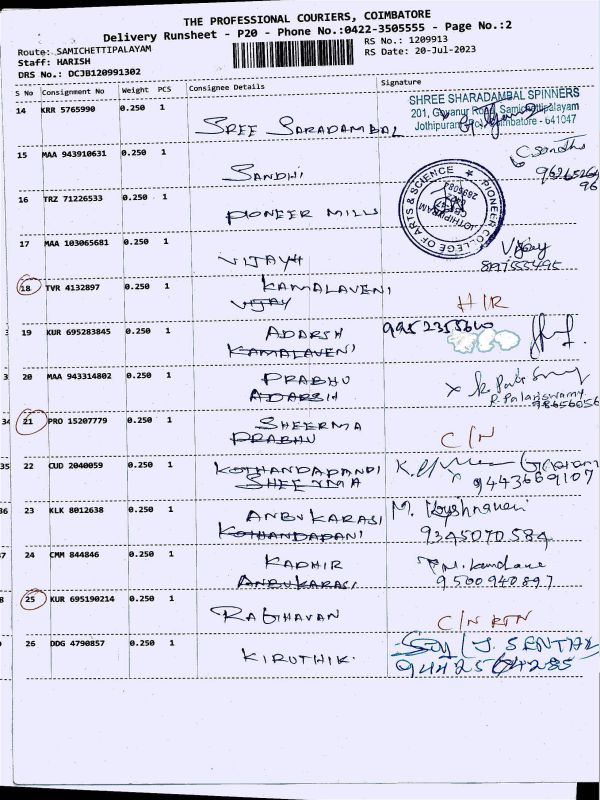 THE PROFESSIONAL COURIERS, COIMBATORE
Delivery Runsheet - P20 - Phone No.:0422-3505555 - Page No.:2
Route: SAMICHETTIPALAYAM
RS No.: 1209913
Staff: HARISH
RS Date: 20-Jul-2023
DRS No.: DCJB120991302
S No Consignment No Weight PCS Consignee Details Signature
14 KRR 5765990 0.250 1 SREE SARADAMBAL
SHREE SHARADAMBAL SPINNERS
201, Govanur Road, Samichettipalayam
Jothipuram Po, Coimbatore - 641047
15 MAA 943910631 0.250 1 SANDHI
16 TRZ 71226533 0.250 1 PIONEER MILLS
PIONEER COLLEGE OF ARTS & SCIENCE
JOTHIPURAM
17 MAA 103065681 0.250 1 VIJAYH Vijay
18 TVR 4132897 0.250 1 KAMALAVENI H/R
VIJAY
19 KUR 695283845 0.250 1 ADARSH
KAMALAVENI
20 MAA 943314802 0.250 1 PRABHU
ADARSH R.Palaniswamy
21 PRO 15207779 0.250 1 SHEERMA C/N
PRABHU
22 CUD 2040059 0.250 1 KOTHANDAPANDI
SHEEYMA 9443669107
23 KLK 8012638 0.250 1 ANBUKARASI M.
KOTHANDAPANI 9345070584
24 CMM 844846 0.250 1 KADHIR
ANBUKARASI 9500940897
25 KUR 695190214 0.250 1 RAGHAVAN C/N RTN
26 DDG 4790857 0.250 1 KIRUTHIK. J. SENTHIL